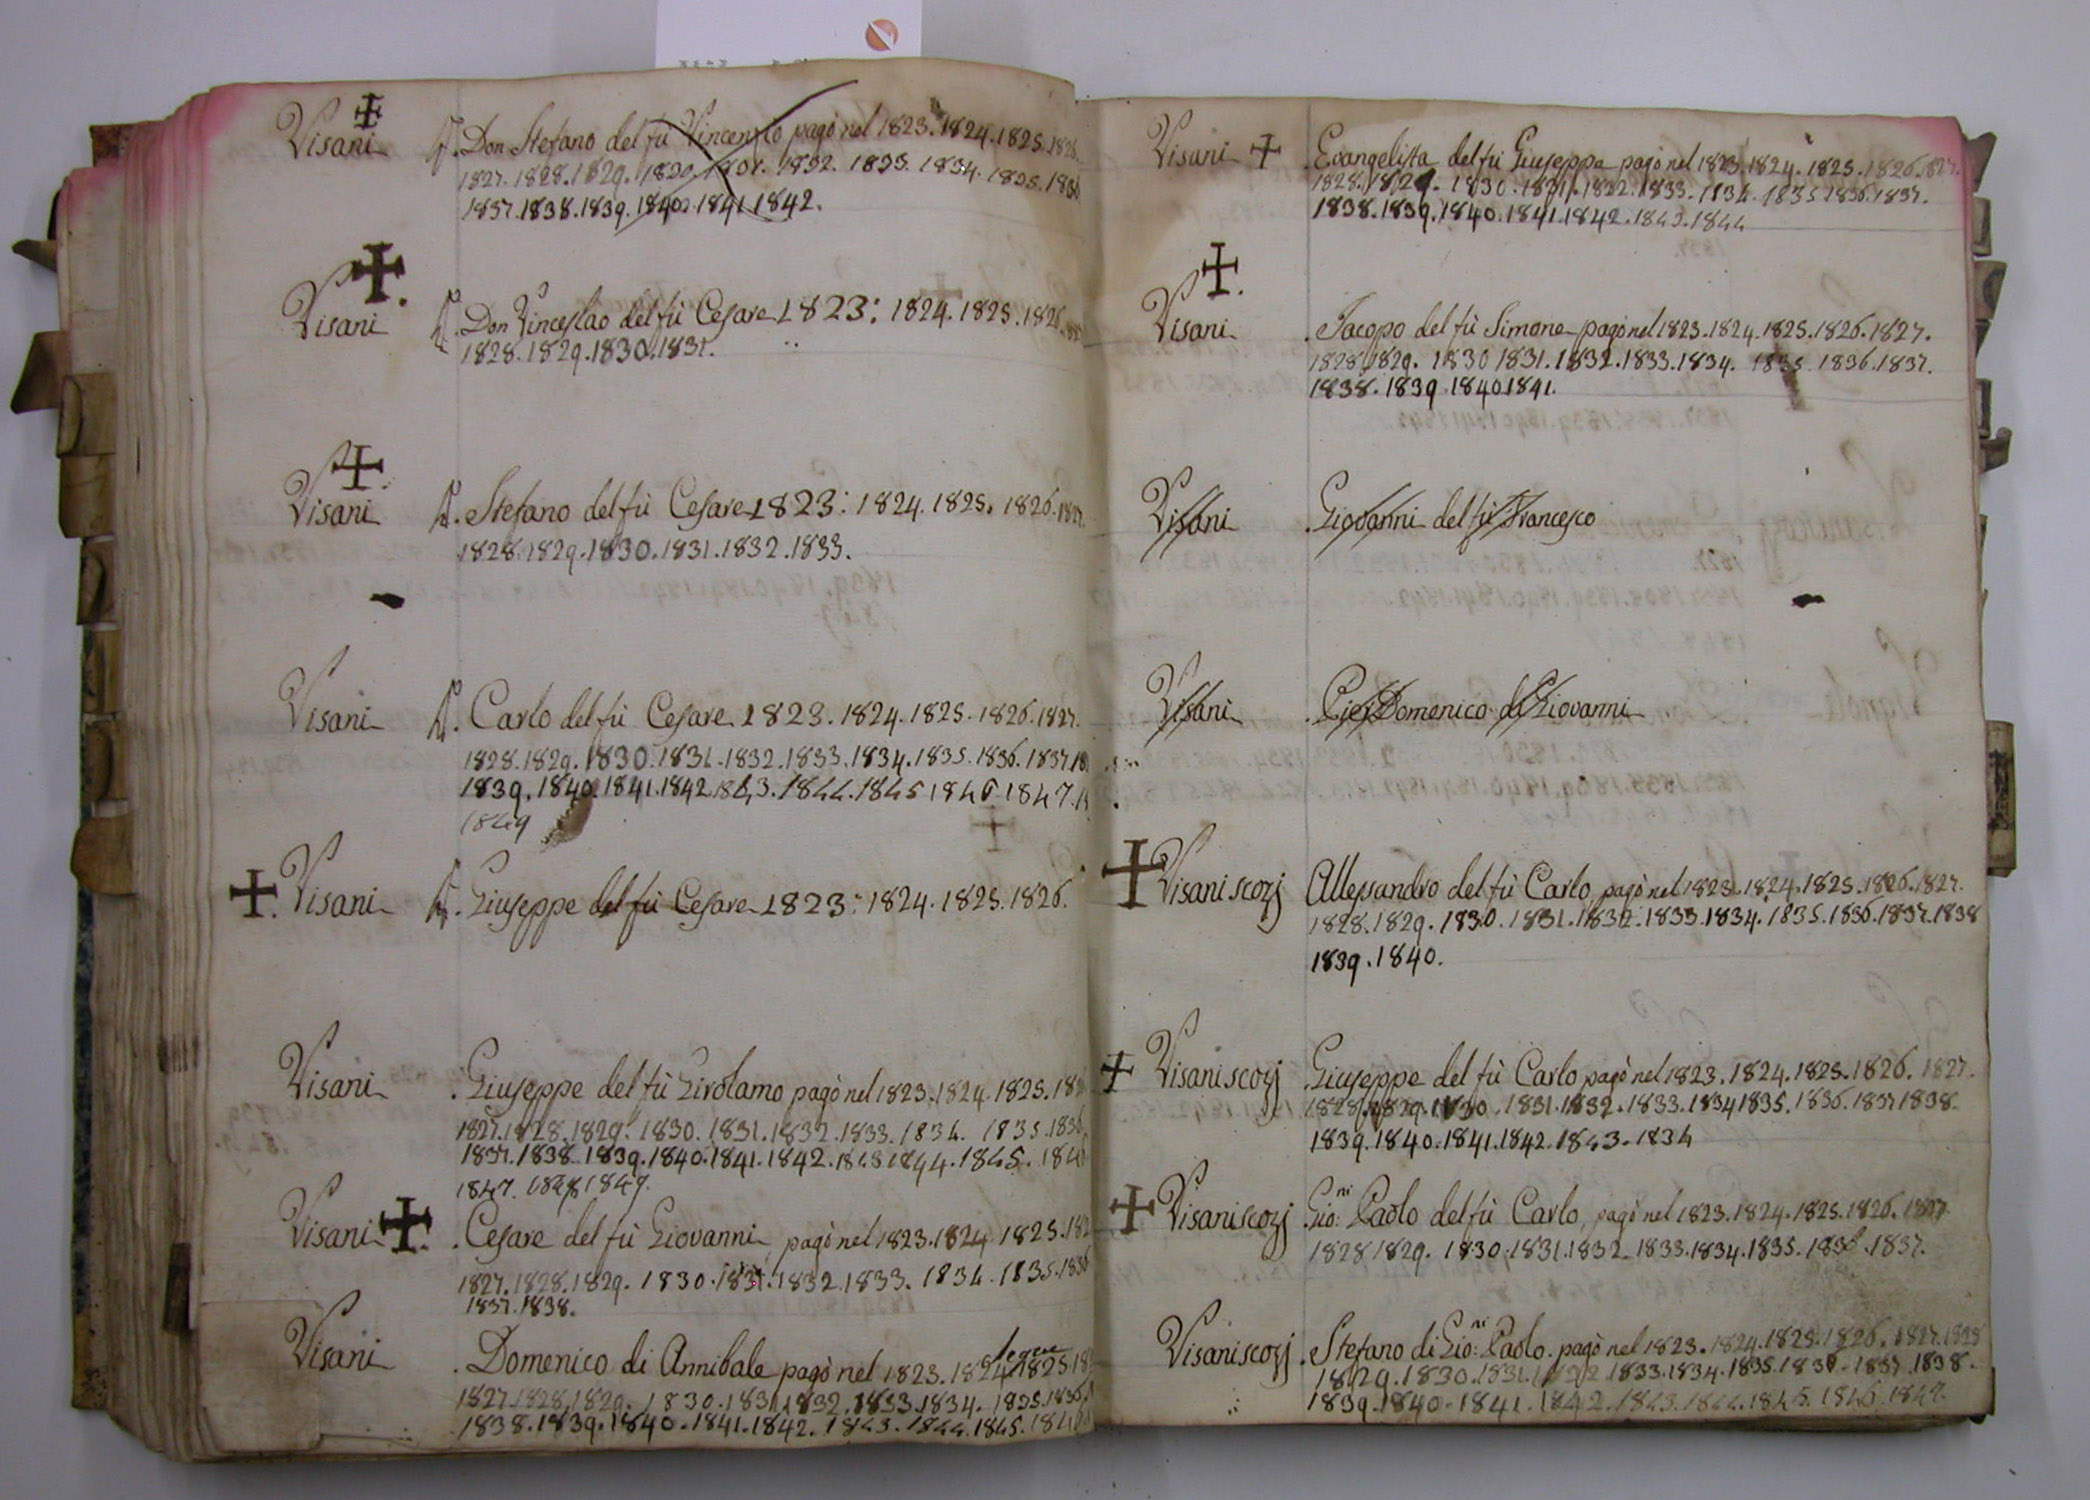 Visani Don Stefano del fù Vincenzo pagò nel 1823. 1824. 1825. 1826
1827. 1828. 1829. 1830. 1831. 1832. 1833. 1834. 1835. 1836
1837. 1838. 1839. 1840. 1841. 1842.
Visani Don Vinceslao del fù Cesare 1823: 1824. 1825. 1826. 1827
1828. 1829. 1830. 1831.
Visani Stefano del fù Cesare 1823: 1824. 1825. 1826. 1827.
1828. 1829. 1830. 1831. 1832. 1833.
Visani Carlo del fù Cesare 1823. 1824. 1825. 1826. 1827.
1828. 1829. 1830. 1831. 1832. 1833. 1834. 1835. 1836. 1837. 18
1839. 1840. 1841. 1842. 1843. 1844. 1845 1846. 1847. 1
1849
Visani Giuseppe del fù Cesare 1823: 1824. 1825. 1826.
Visani Giuseppe del fù Girolamo pagò nel 1823. 1824. 1825. 182
1827. 1828. 1829. 1830. 1831. 1832. 1833. 1834. 1835. 1836
1837. 1838. 1839. 1840. 1841. 1842. 1843 1844. 1845. 184
1847. 1848 1849.
Visani Cesare del fù Giovanni, pagò nel 1823. 1824. 1825. 182
1827. 1828. 1829. 1830. 1831. 1832. 1833. 1834. 1835. 1836
1837. 1838.
Visani Domenico di Annibale pagò nel 1823. 1824. 1825. 18
1827. 1828. 1829. 1830. 1831. 1832. 1833. 1834. 1835. 1836.
1838. 1839. 1840. 1841. 1842. 1843. 1844. 1845. 184
Visani Evangelista del fù Giuseppe pagò nel 1823. 1824. 1825. 1826. 1827.
1828. 1829. 1830. 1831. 1832. 1833. 1834. 1835. 1836. 1837.
1838. 1839. 1840. 1841. 1842. 1843. 1844
Visani Jacopo del fù Simone pagò nel 1823. 1824. 1825. 1826. 1827.
1828. 1829. 1830 1831. 1832. 1833. 1834. 1835. 1836. 1837.
1838. 1839. 1840. 1841.
Visani Giovanni del fù Francesco
Visani Pier Domenico di Giovanni
Visani scozj Allessandro del fù Carlo, pagò nel 1823. 1824. 1825. 1826. 1827.
1828. 1829. 1830. 1831. 1832. 1833. 1834. 1835. 1836. 1837. 1838
1839. 1840.
Visani scozj Giuseppe del fù Carlo pagò nel 1823. 1824. 1825. 1826. 1827.
1828. 1829. 1830. 1831. 1832. 1833. 1834 1835. 1836. 1837 1838.
1839. 1840. 1841. 1842. 1843. 1834
Visani scozj Gio:ni Paolo del fù Carlo, pagò nel 1823. 1824. 1825. 1826. 1827.
1828 1829. 1830. 1831. 1832. 1833. 1834. 1835. 1836. 1837.
Visani scozj Stefano di Gio:ni Paolo. pagò nel 1823. 1824. 1825. 1826. 1827. 1828
1829. 1830. 1831. 1832. 1833. 1834. 1835. 1836. 1837. 1838.
1839. 1840. 1841. 1842. 1843. 1844. 1845. 1846. 1847.